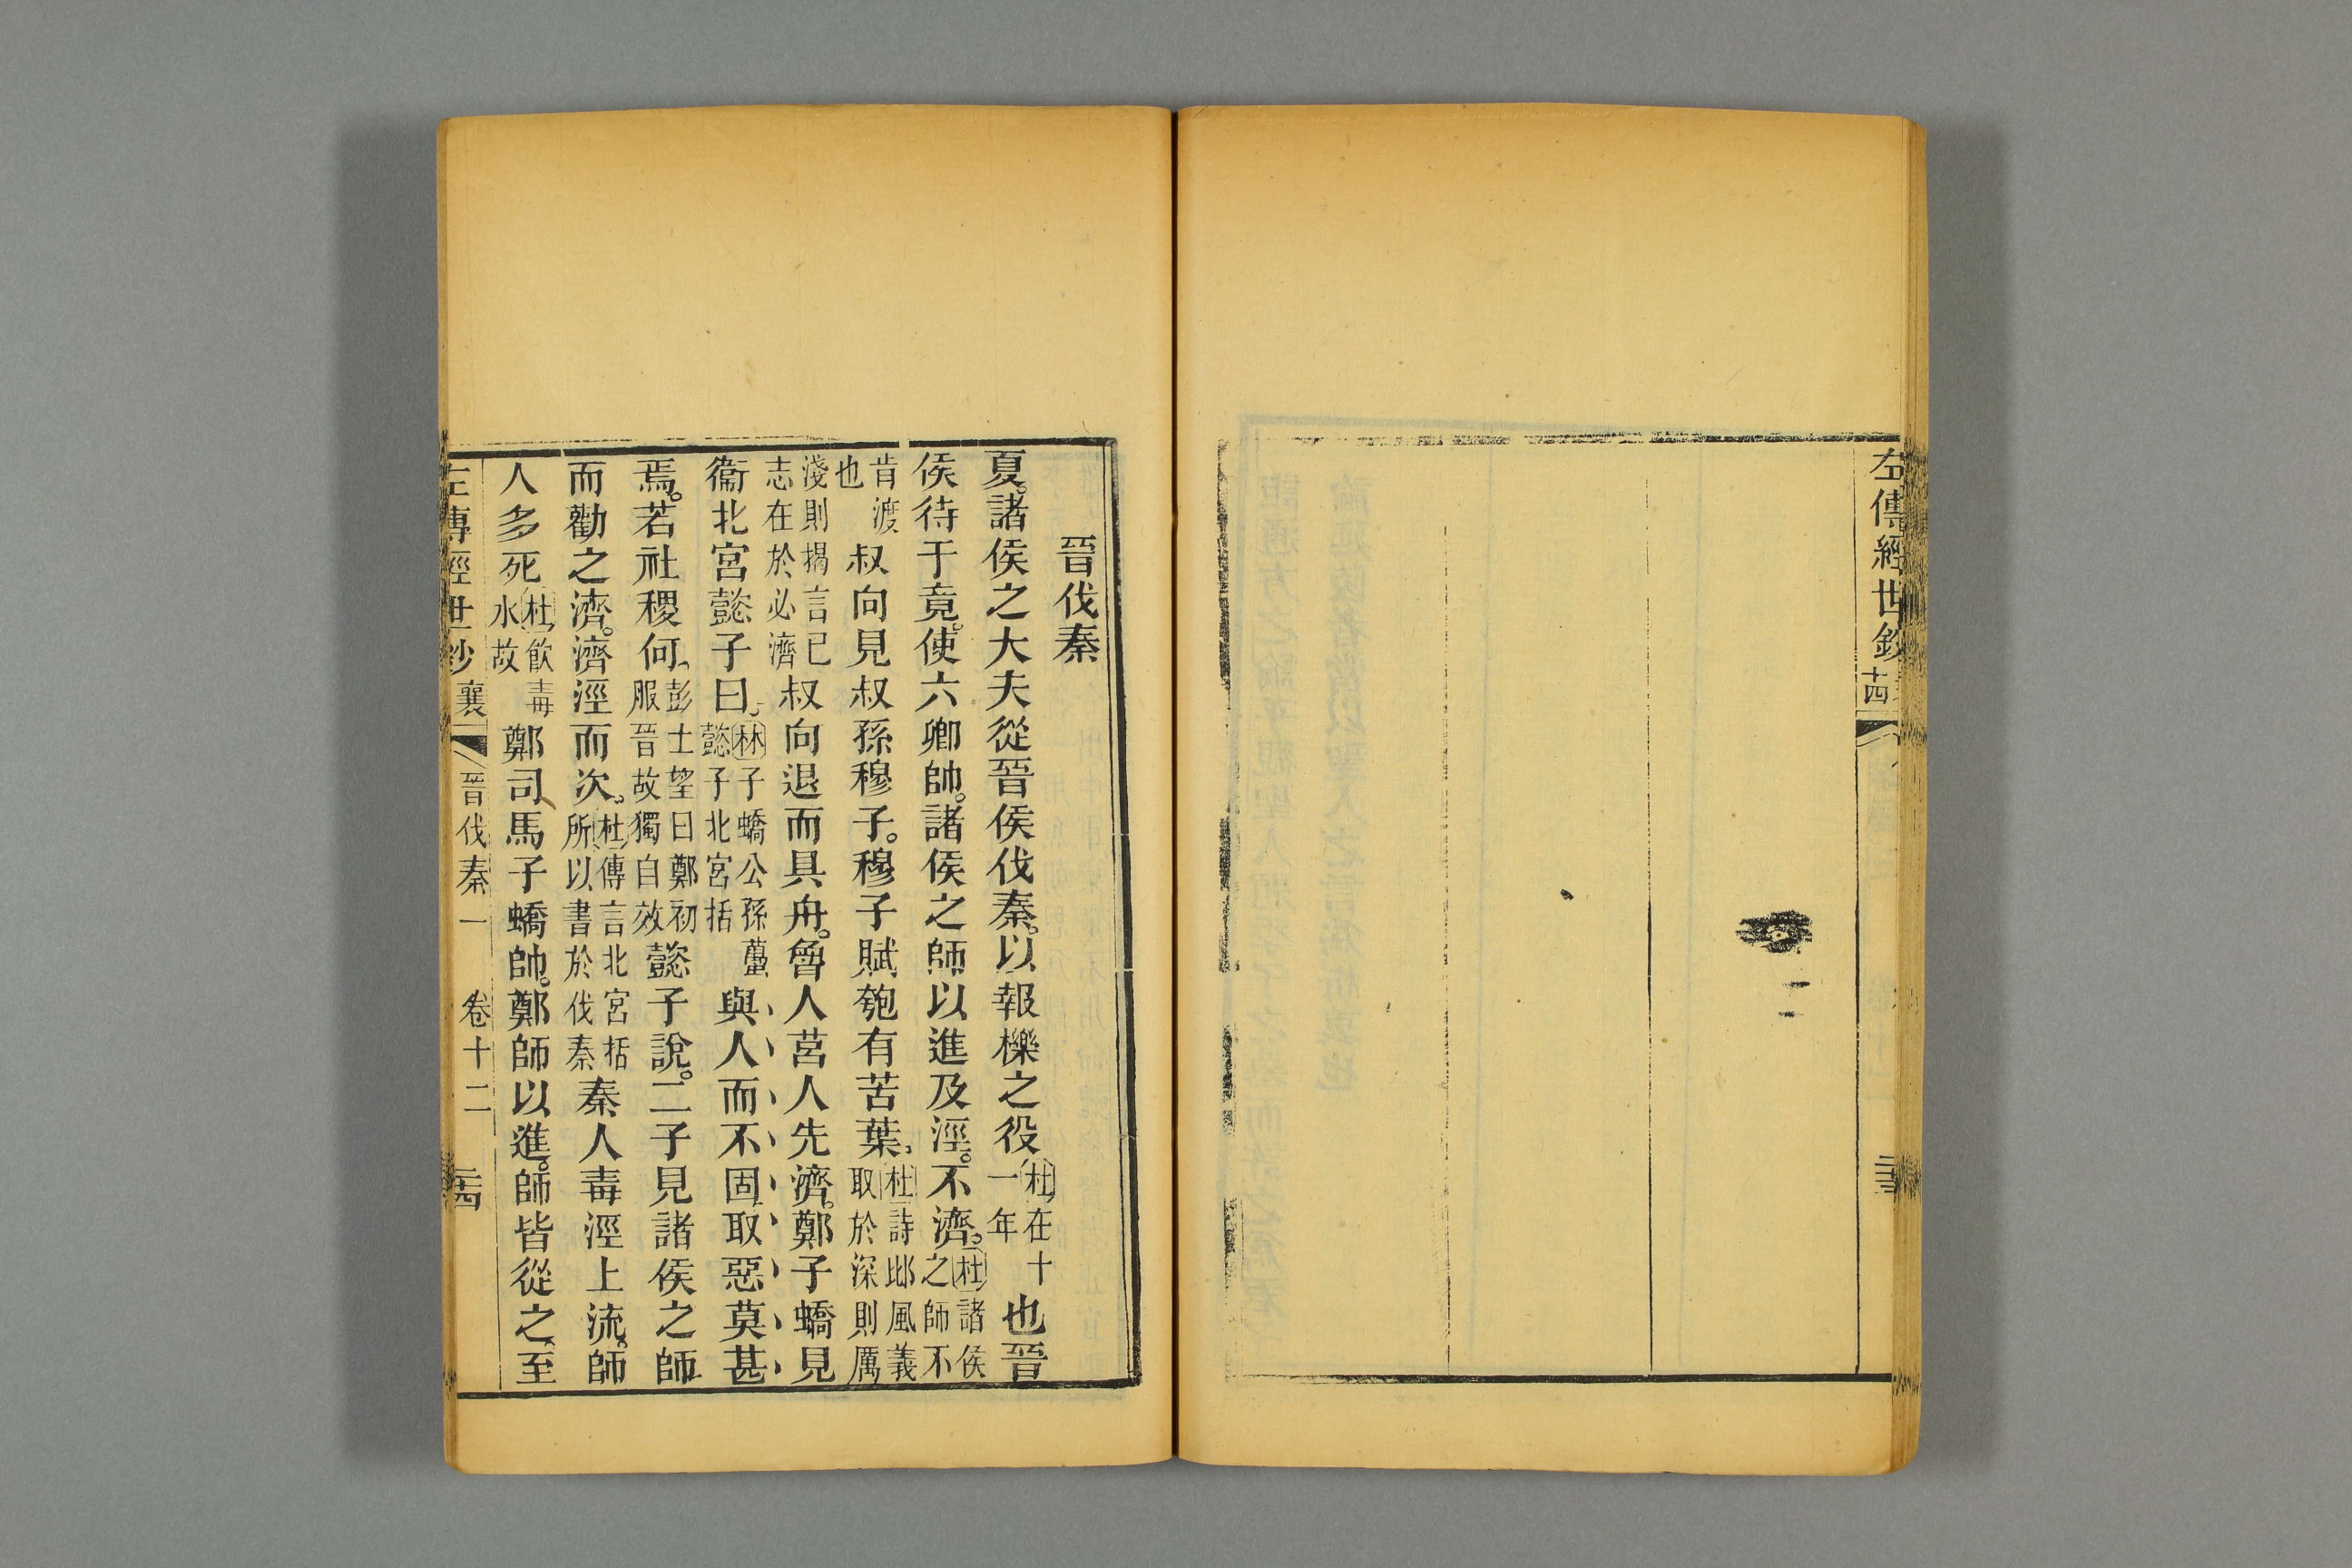 左傳經世鈔
十四
晉伐秦
夏。諸侯之大夫從晉侯伐秦。以報櫟之役杜在十一年也晉
侯待于竟。使六卿帥。諸侯之師以進及涇。不濟。杜諸侯之師不
肯渡也叔向見叔孫穆子。穆子賦匏有苦葉、杜詩邶風義取於深則厲
淺則揭言己志在於必濟叔向退而具舟。魯人莒人先濟。鄭子蟜見
衞北宮懿子曰。林子蟜公孫蠆懿子北宮括與人而不固取惡莫甚
焉。若社稷何、彭士望曰鄭初服晉故獨自效懿子說。二子見諸侯之師
而勸之濟。濟涇而次。杜傳言北宮括所以書於伐秦秦人毒涇上流。師
人多死杜飲毒水故鄭司馬子蟜帥。鄭師以進。師皆從之、至
左傳經世鈔 襄 晉伐秦一 卷十二 二十四